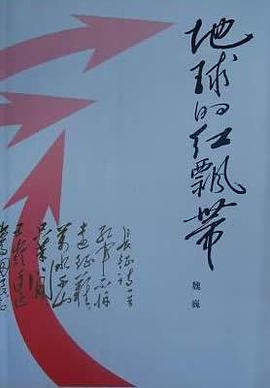 地球的红飄带
魏巍
长征诗一首
红军不怕
远征难
万水千山
只等闲
五岭逶迤